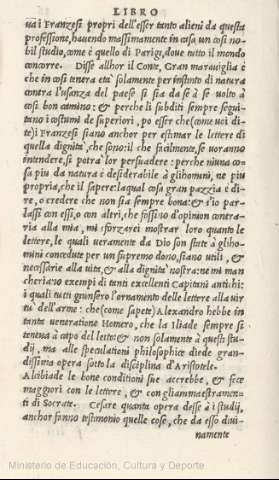 LIBRO
uа i Franzesi propri dell'esser tanto alieni da questa
professione, hauendo massimamente in casa un cosi no-
bil studio, come è quello di Parigi, doue tutto il mondo
concorre. Disse allhor il Conte, Gran marauiglia è
che in cosi tenera età solamente per instinto di natura
contra l'usanza del paese si sia da se à se uolto à
cosi bon camino: & perche li subditi sempre segui-
tano i costumi de superiori, po esser che (come uoi di-
te) i Franzesi siano anchor per estimar le lettere di
quella dignità, che sono: il che facilmente, se uoranno
intendere, si potrà lor persuadere: perche niuna co-
sa piu da natura è desiderabile à gli homini, ne piu
propria, che il sapere: laqual cosa gran pazzia è di-
re, o credere che non sia sempre bona: & s'io par-
lassi con essi, o con altri, che fossino d'opinion contra-
ria alla mia, mi sforzarei mostrar loro quanto le
lettere, le quali ueramente da Dio son state à gli ho-
mini concedute per un supremo dono, siano utili, &
necessarie alla uita, & alla dignità nostra: ne mi man
cheriano exempi di tanti excellenti Capitani antichi:
i quali tutti giunsero l'ornamento delle lettere alla uir
tù dell'arme: che (come sapete) Alexandro hebbe in
tanta ueneratione Homero, che la Iliade sempre si
teneua à capo del letto: & non solamente à questi stu-
dij, ma alle speculationi philosophice diede gran-
dissima opera sotto la disciplina d'Aristotele.
Alcibiade le bone conditioni sue accrebbe, & fece
maggiori con le lettere, & con gli ammaestramen-
ti di Socrate. Cesare quanta opera desse à i studij,
anchor fanno testimonio quelle cose, che da esso diui-
namente
Ministerio de Educación, Cultura y Deporte